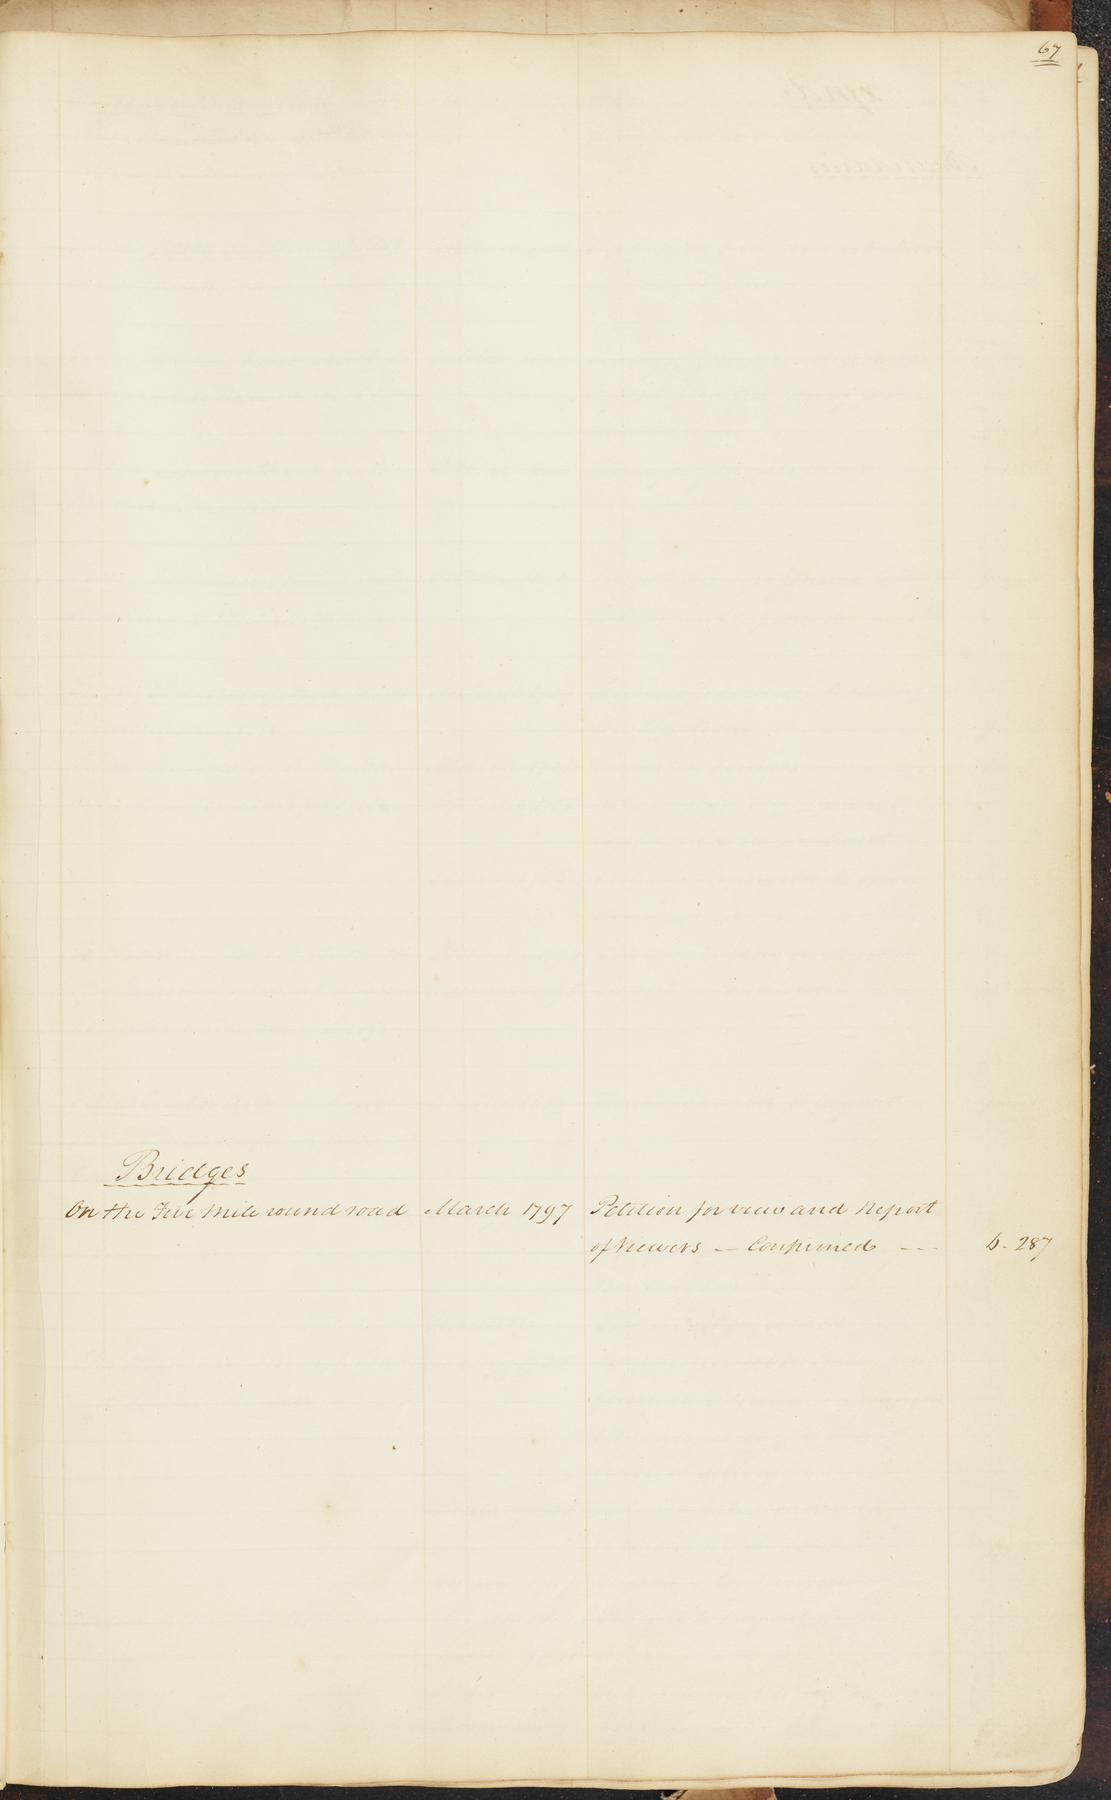 67
Bridges
On the Five mile round road March 1797 Petition for view and Report
of Viewers — Confirmed --- 6-287